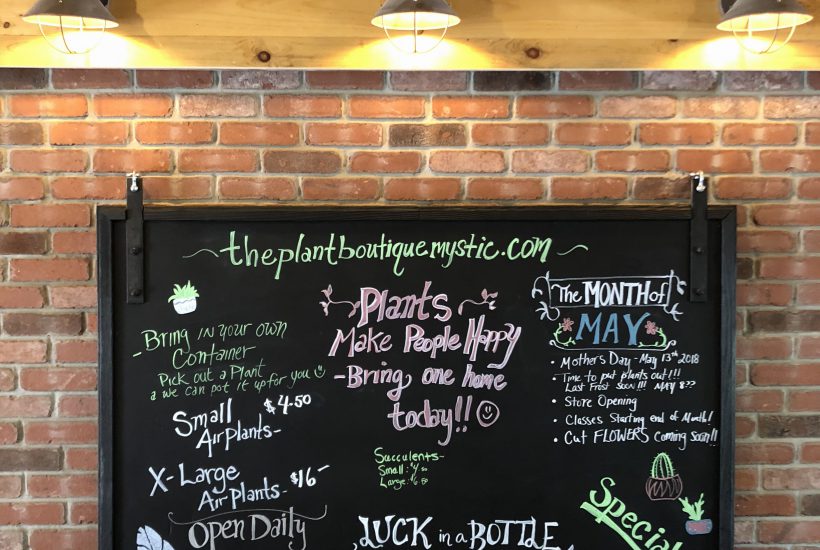 theplantboutiquemystic.com
-Bring in your own
Container
Pick out a Plant
& we can pot it up for you
Small $4.50
AirPlants-
X-Large
AirPlants- $16-
Open Daily
Plants
Make People Happy
-Bring one home
today!!
Succulents-
Small:
Large:
LUCK in a BOTTLE
The MONTH of
MAY
• Mother's Day - May 13th 2018
• Time to put plants out!!!
Last Frost soon!!! MAY 8??
• Store Opening
• Classes Starting end of Month!
• Cut FLOWERS coming soon!!
Special